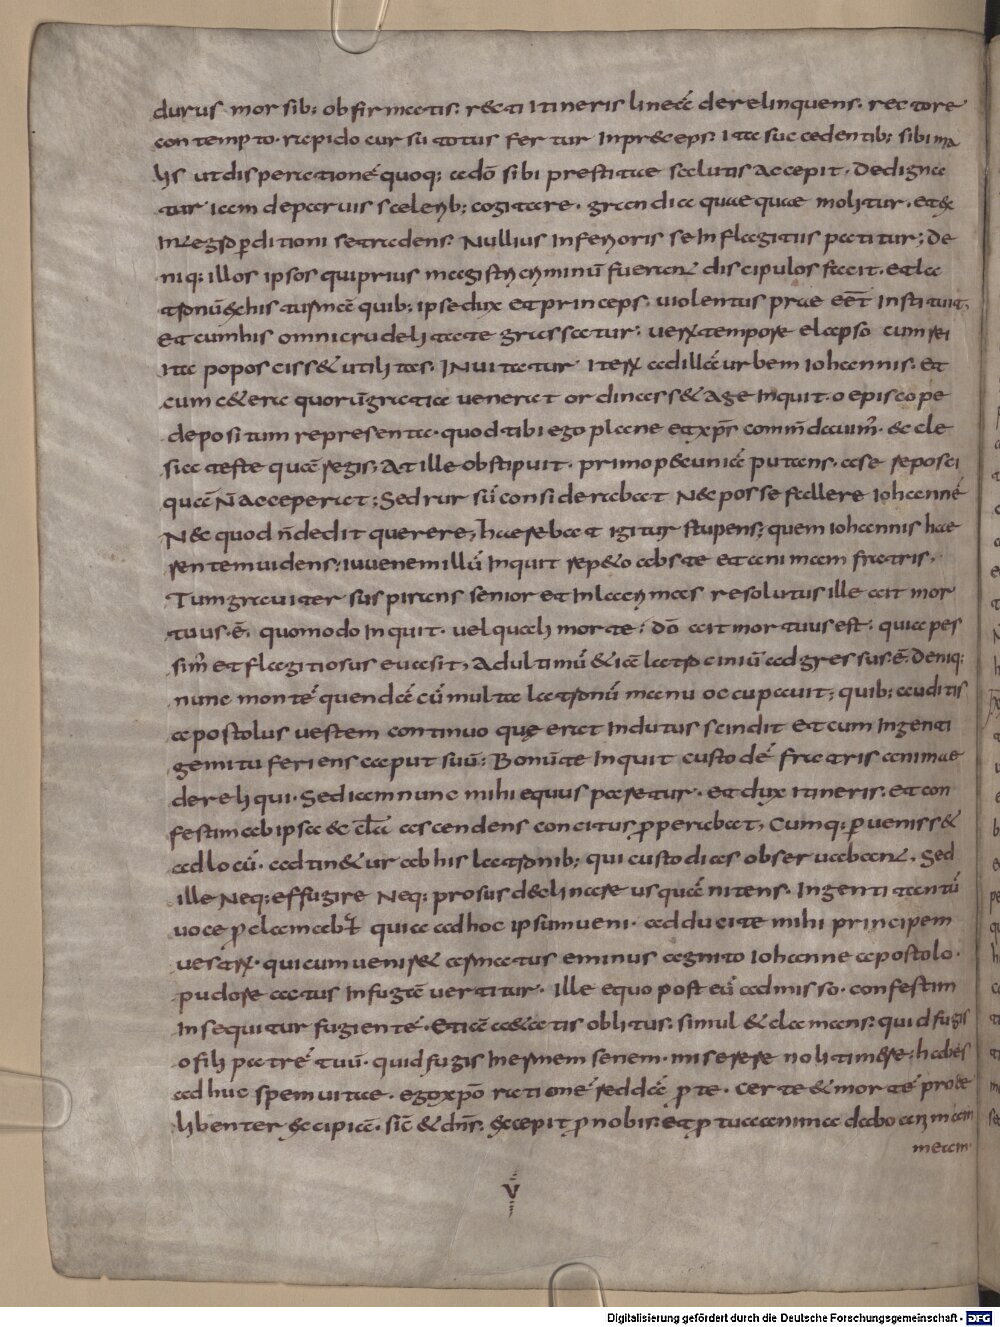 durus morsib; obfirmatis. recti itineris lineā derelinquens. rectore
contempto. rapido cursu totus fertur inpreceps. Ita succedentib; sibi ma
lis ut disperationē quoq; a dō sibi prestitae salutis accepit. Dedigna
tur iam de parvis sceleribus; cogitare. grandia quaeque molitur. et se
integro perditioni se tradens. Nullius inferioris se in flagitiis patitur; De
niq; illos ipsos qui prius magistri criminū fuerant discipulos facit. et la
tronū ex his turmā quib; ipse dux et princeps. violentus prae eēt instituit.
Et cum his omni crudelitate grassatur. vero tempore elapso cum rei
ita poposcisset utilitas. Invitatur iterum ad illā urbem iohannis. Et
cum cetera quorū gratia venerat ordinasset Age inquit o episcope
depositum representa. quod tibi ego plane et xps commdavim. eccle
sia teste quā regis. At ille obstipuit. primo pecuniā putans. a se reposci
quā n̄ acceperat; Sed rursū considerabat nec posse fallere iohannē
Nec quod n̄ dedit querere, haerebat igitur stupens; quem iohannis hae
rentem videns. iuvenem illū inquit repeto abs te et animam fratris.
Tum graviter suspirans senior et in lacrimas resolutus ille ait mor
tuus ē. quomodo inquit. vel quali morte; dō ait mortuus est. quia pes
simus et flagitiosus evasit, Ad ultimū etiā latrociniū adgressus ē. Deniq;
nunc montē quendā cū multa latronū manu occupavit; quib; auditis
apostolus vestem continuo quę erat indutus scindit et cum ingenti
gemitu feriens caput suū: Bonū te inquit custodē fratris animae
dereliqui. Sed iam nunc mihi equus paretur. et dux itineris. et con
festim ab ipsa eccla ascendens concitus properabat, Cumq; pervenisset
ad locū. adtinetur ab his latronib; qui custodias observabant. Sed
ille neq; effugire neq; prosus declinare usquā nitens. Ingenti tantū
voce proclamabat quia ad hoc ipsum veni. adducite mihi principem
vestrum. qui cum veniret armatus eminus agnito iohanne apostolo.
pudore actus in fugā vertitur. Ille equo post eū admisso. confestim
insequitur fugientē. Etiā aetatis oblitus. simul et clamans. quid fugis
o fili patrē tuū. quid fugis inermem senem. miserere noli timere; habes
adhuc spem vitae. ego xpo rationē reddā pro te. certe et mortē pro te
libenter excipiā. Sic et dns. excepit pro nobis. et pro tua anima dabo animam
meam
V
Digitalisierung gefördert durch die Deutsche Forschungsgemeinschaft - DFG